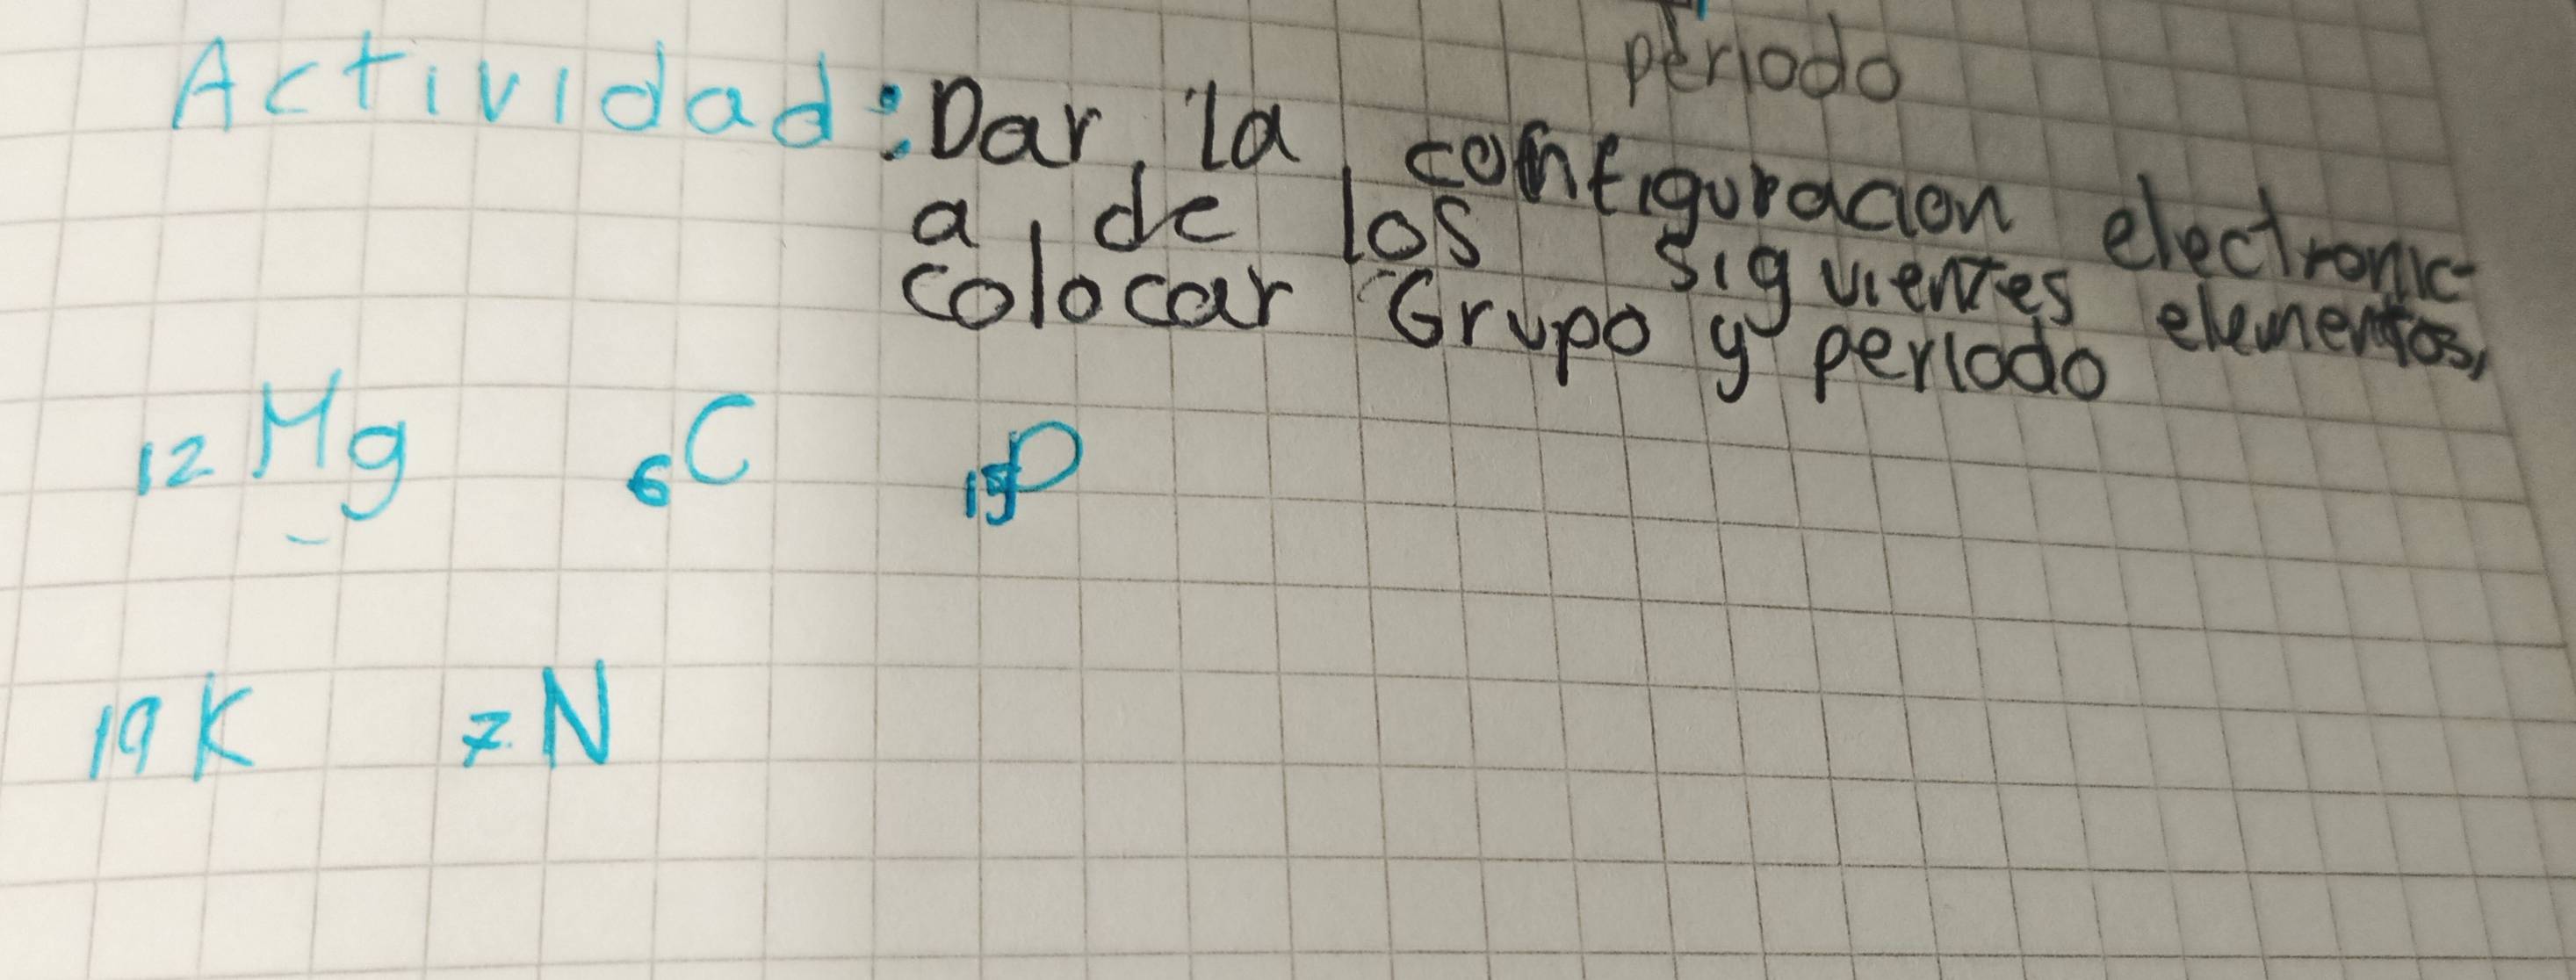 periodo
Actividad: Dar la configuracion electronic-
a, de los siguientes elementos,
colocar Grupo y periodo
12Mg 6C 15P
19K 7N